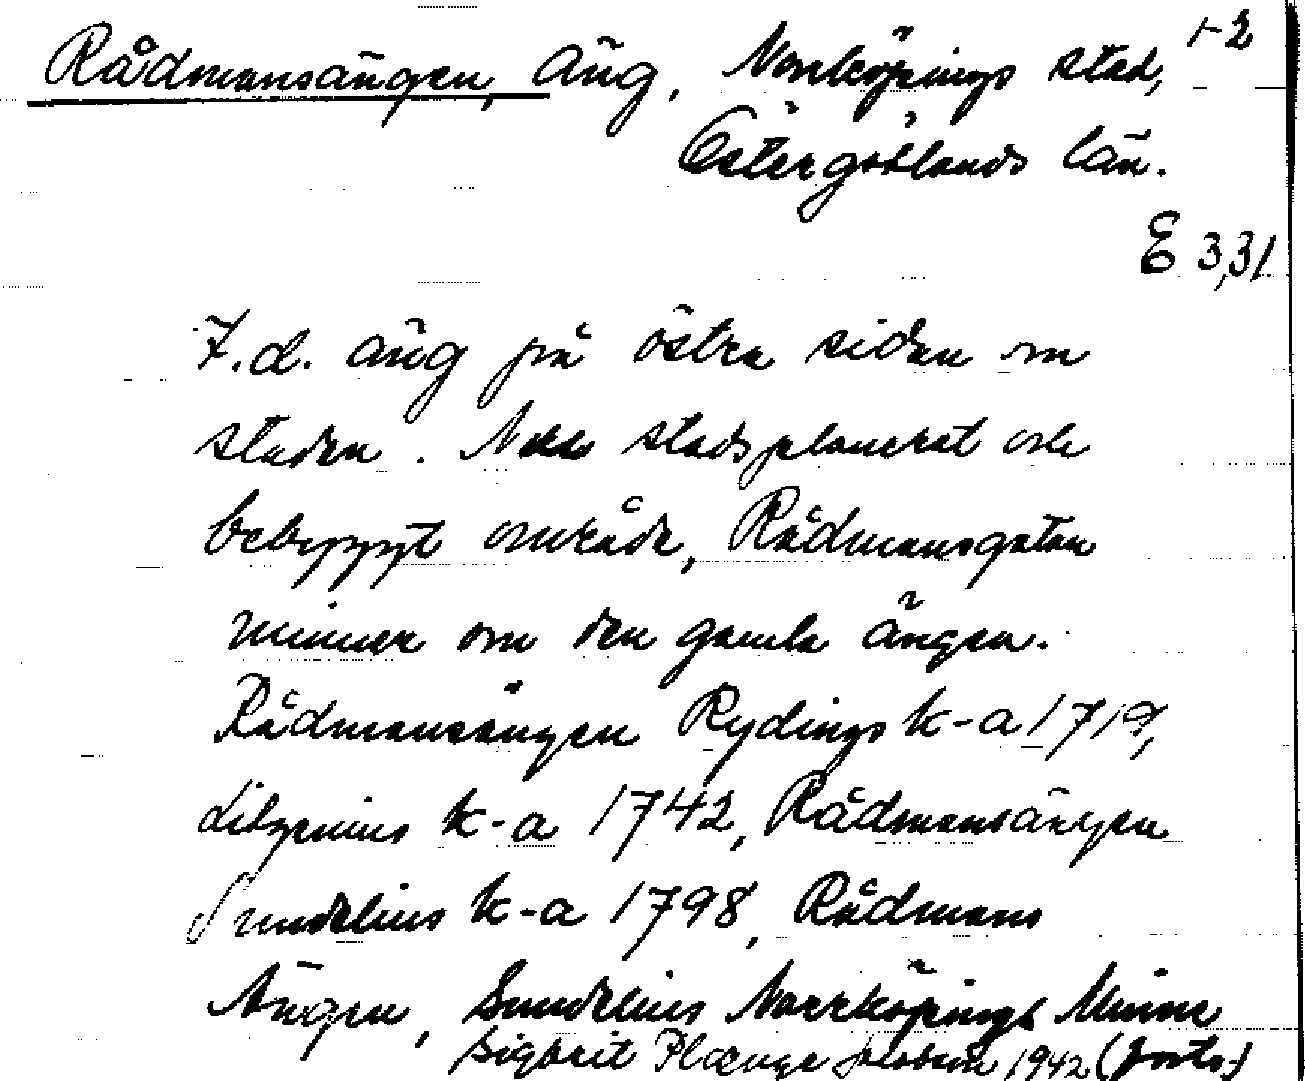 1-2
Rådmansängen, äng, Norrköpings stad,
Östergötlands län.
E 3,31
F.d. äng på östra sidan om
staden. Nu stadsplanerat och
bebyggt område, Rådmansgatan
minner om den gamla ängen.
Rådmansängen Rydings k-a 1719,
Lithzenius k-a 1742, Rådmansängen
Sundelius k-a 1798, Rådmans
Ängen, Sundelius Norrköpings Minne
Sigbrit Plænge Jacobson 1942 (forts.)